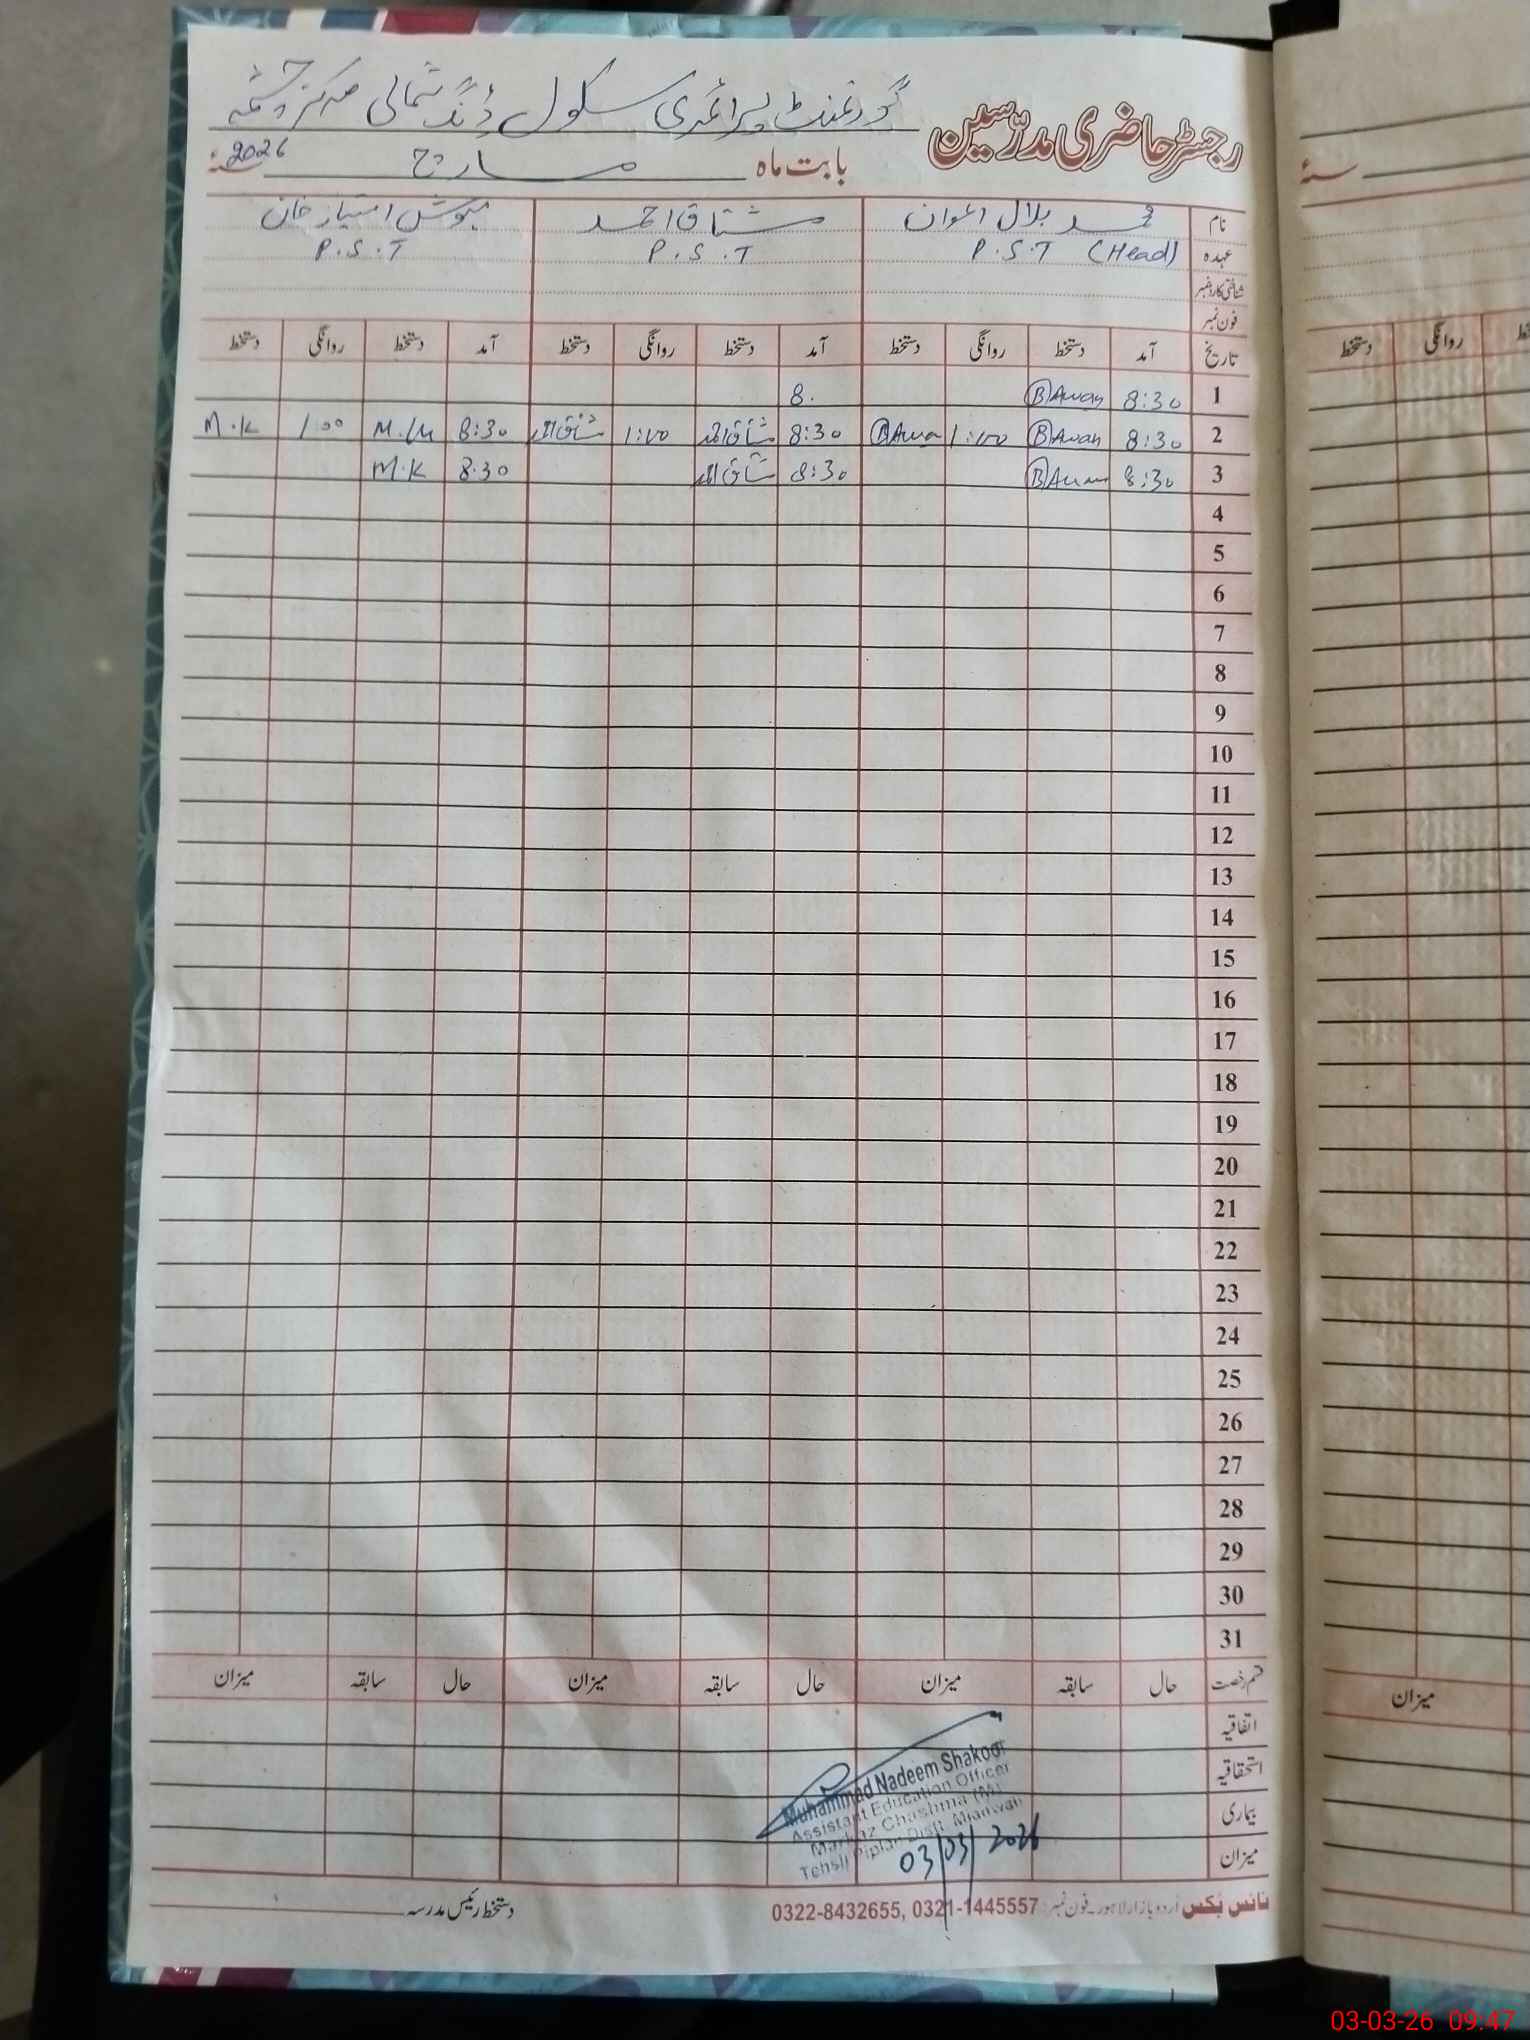 رجسٹر حاضری مدرّسین گورنمنٹ پرائمری سکول ڈنڈ شمالی مرکز چشمہ
بابت ماہ مارچ سنہ 2026
نام محمد بلال اعوان مشتاق احمد مہوش امتیاز خان
عہدہ P.S.T (Head) P.S.T P.S.T
شناختی کارڈ نمبر
فون نمبر
تاریخ آمد دستخط روانگی دستخط آمد دستخط روانگی دستخط آمد دستخط روانگی دستخط
1 8:30 (B)Awan 8.
2 8:30 (B)Awan 1:00 (B)Awa 8:30 مشتاق احمد 1:00 مشتاق احمد 8:30 M.K 1:00 M.K
3 8:30 (B)Awan 8:30 مشتاق احمد 8:30 M.K
4
5
6
7
8
9
10
11
12
13
14
15
16
17
18
19
20
21
22
23
24
25
26
27
28
29
30
31
قسم رخصت حال سابقہ میزان حال سابقہ میزان حال سابقہ میزان
اتفاقیہ
استحقاقیہ
بیماری
میزان
Muhammad Nadeem Shakoor
Assistant Education Officer
Markaz Chashma (M)
Tehsil Piplan Distt. Mianwali
03/03/2026
نائس بکس اردو بازار لاہور۔ فون نمبر: 0322-8432655, 0321-1445557
دستخط رئیس مدرسہ
سنہ
دستخط روانگی
میزان
03-03-26 09:47